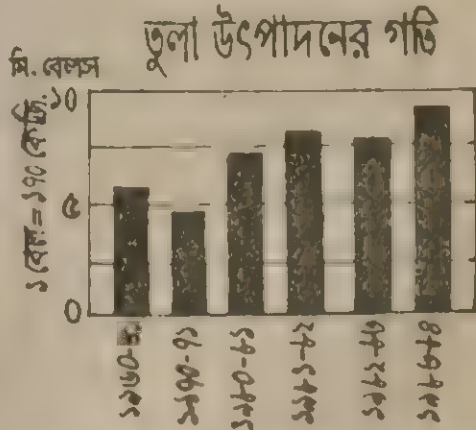 তুলা উৎপাদনের গতি
মি. বেলস
১ বেল = ১৭০ কেজি.
10
৫
0
১৯৭০-৭১
১৯৮০-৮১
১৯৮১-৮২
১৯৮২-৮৩
১৯৮৩-৮৪